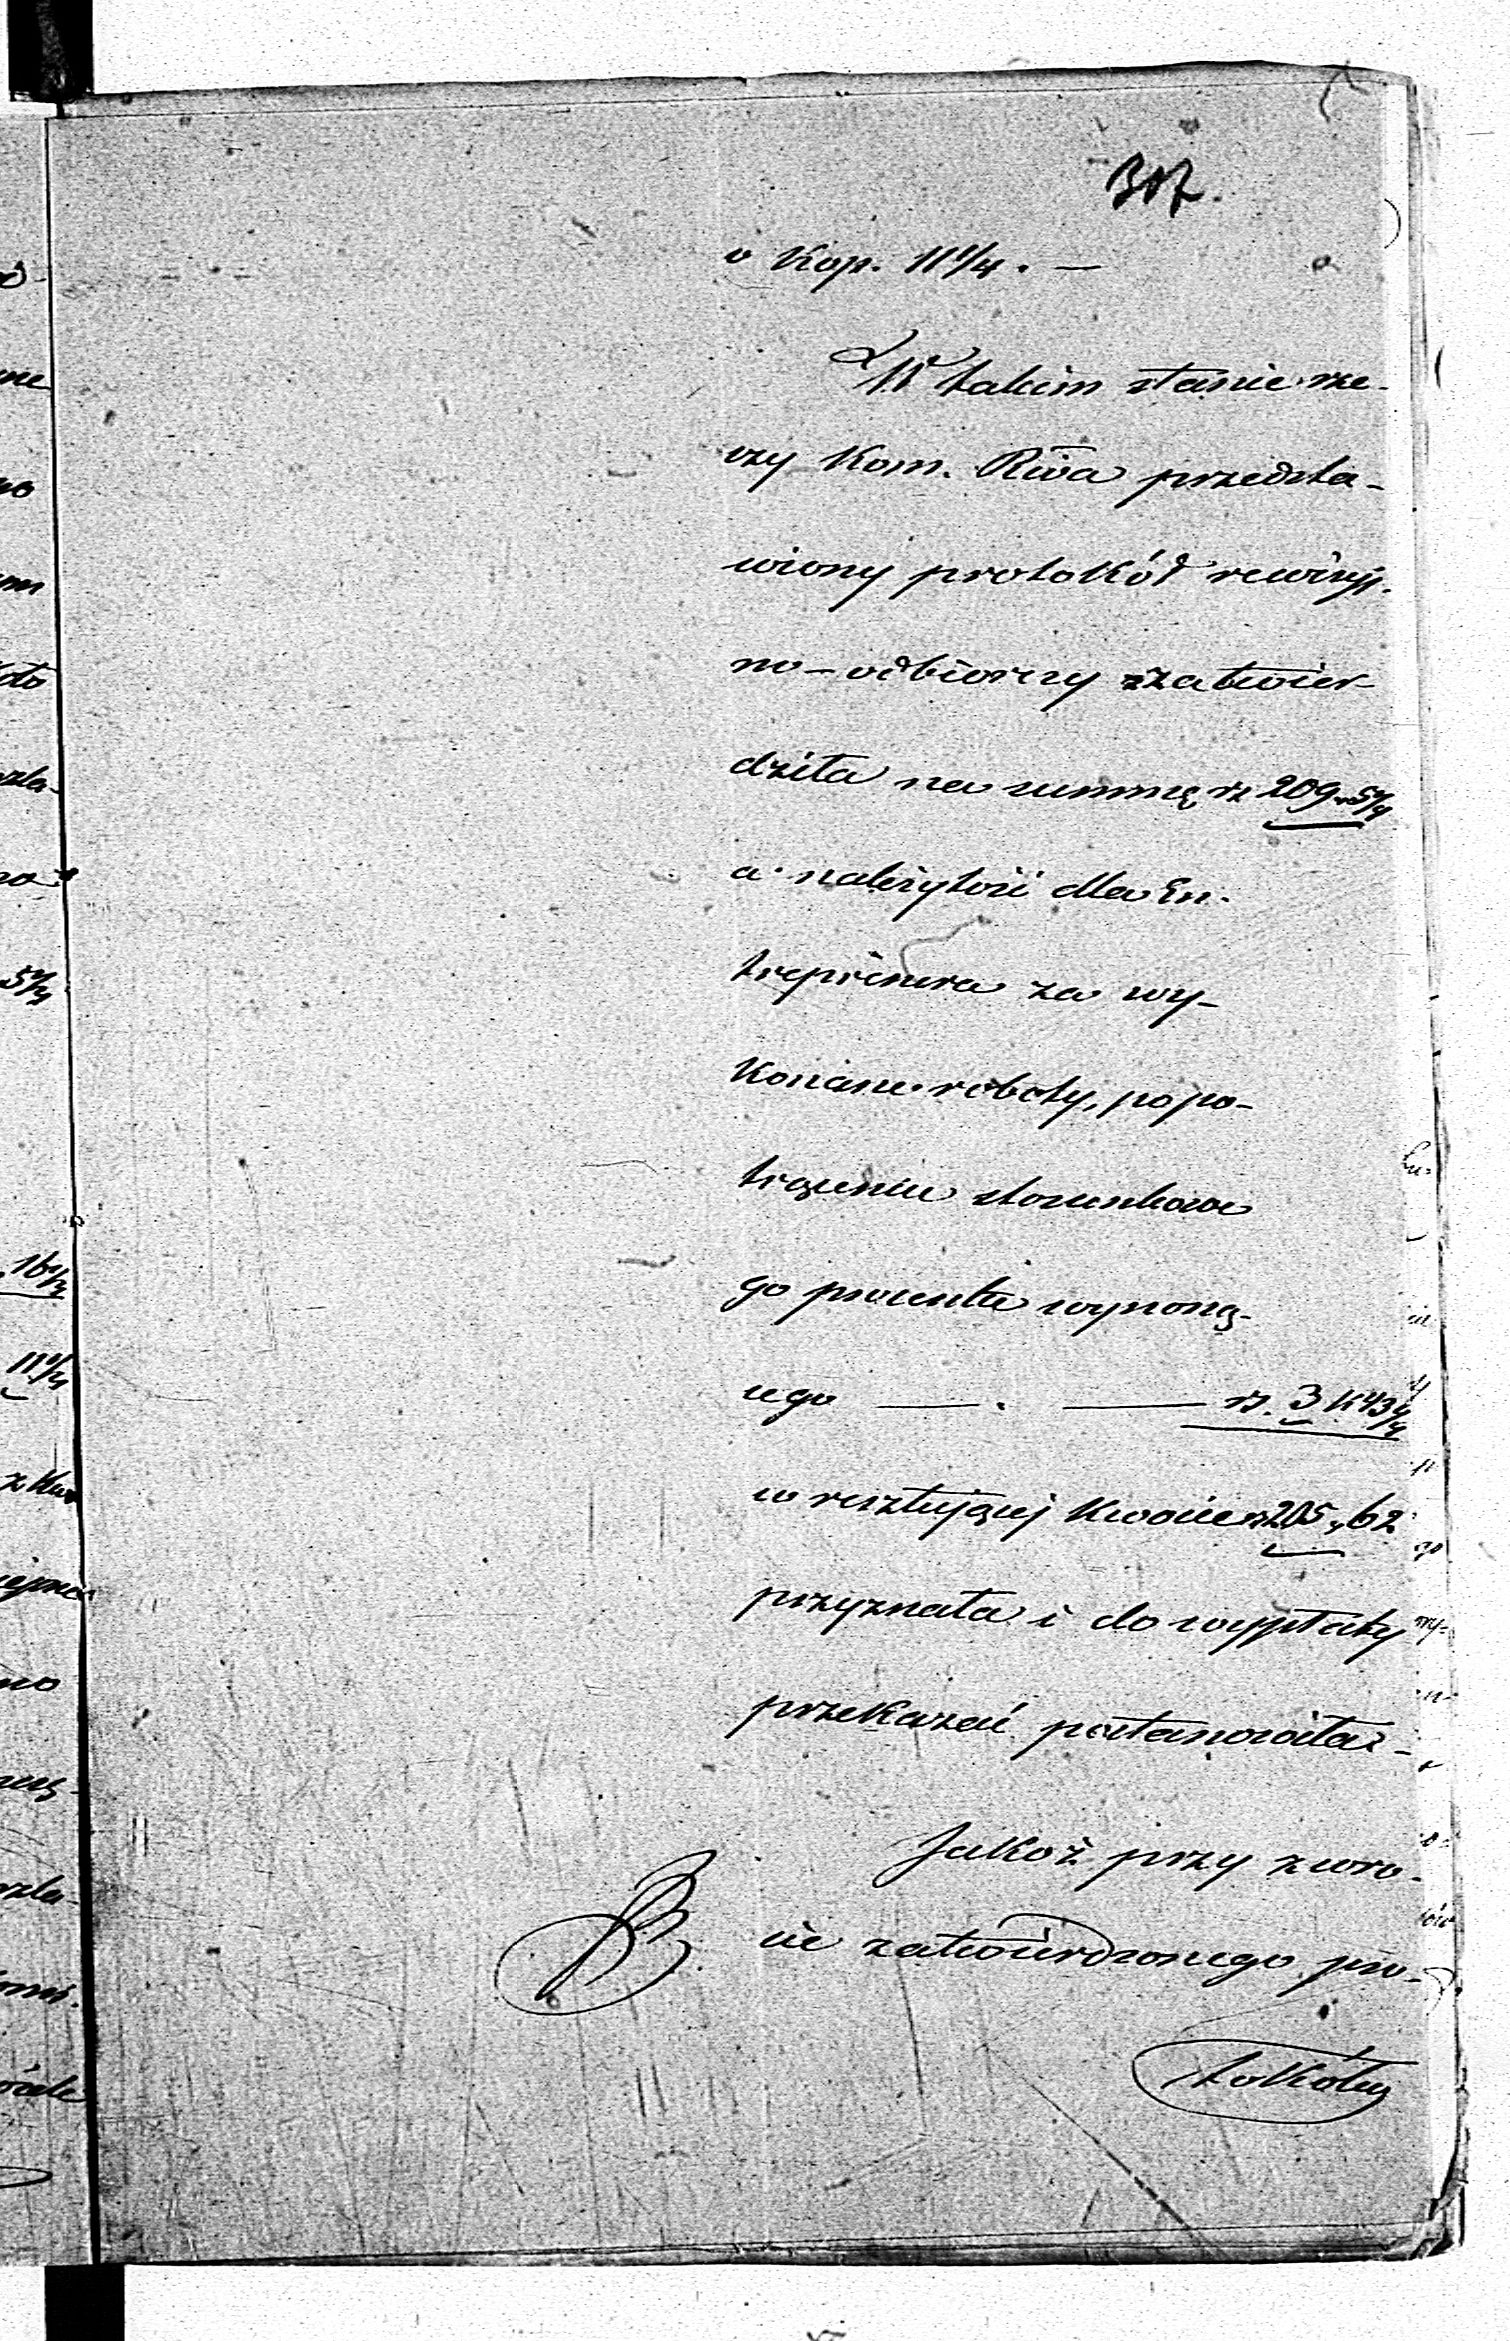 307.
o Kop. 11 1/4. —
W takim stanie rze-
czy Kom. Rwa przedsta-
wiony protokół rewizyj-
no-odbiorczy zatwier-
dziła na summę rs 209 „ 5 1/4
a należytość dla En-
treprienera za wy-
konane roboty, po po-
trąceniu stosunkowe
go procentu wynoszą-
cego — . — rs. 3 k 43 1/4
w resztującej kwocie rs 205 „ 62
przyznała i do wypłaty
przekazać postanowiła -
Jakoż przy zwro-
cie zatwierdzonego pro-
tokółu